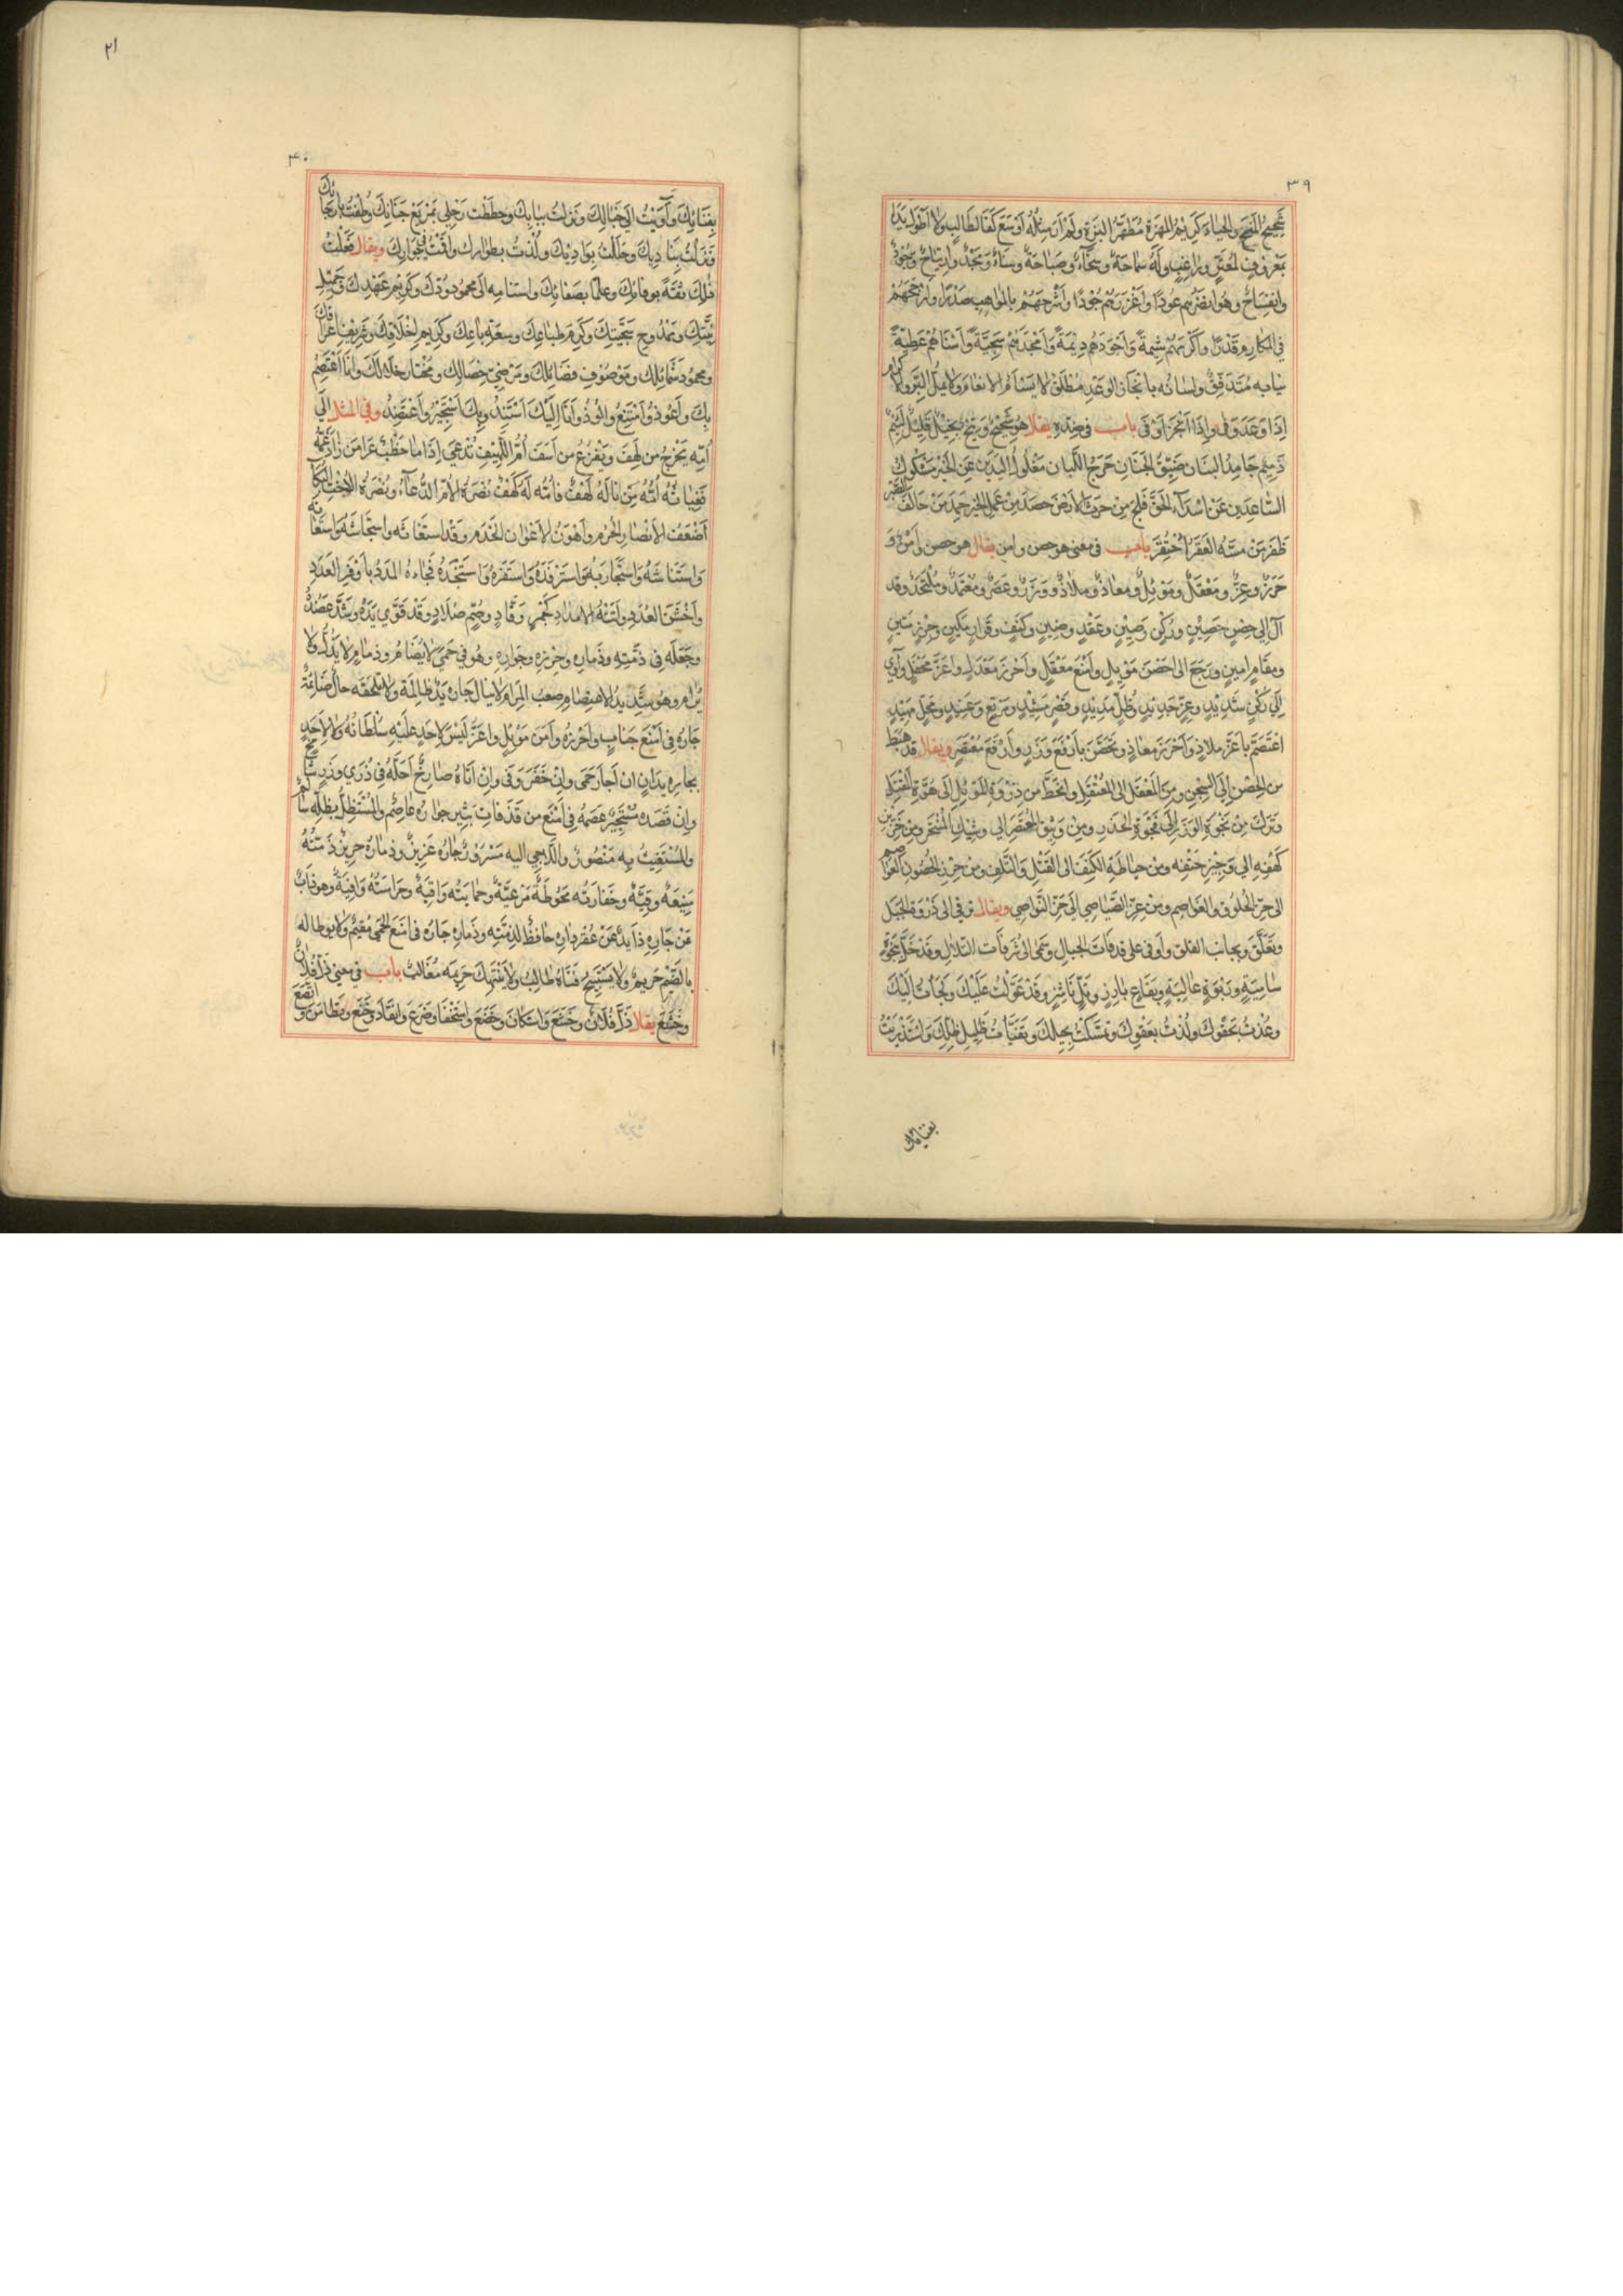 ٣٩
شحيح المنح والحياء كريم المهزة مطهر البزة ولم أر مثله أوسع كفا لطالب ولا أطول يدا
بمعروف لمعتر وراغب وله سماحة وسخاء وصباحة وسناء ومجد وارتياح وجود
وانفساح وهو أنضرهم عودا وأغزرهم جودا وأشرحهم بالمواهب صدرا وأرجحهم
في المكارم قدرا وأكرمهم شيمة وأجودهم ديمة وأمجدهم سجية وأسناهم عطية
متدفق ولسانه بانجاز الوعد منطلق لا يسأم الانعام ولا يمل البر والاكرام
إذا وعد وفى وإذا أنجز أوفى باب في ضده يقال هو شحيح وبخيل قليل لئيم
ذميم جامد البنان ضيق الجنان حرج اللبان مغلول اليدين عن الخير مشكوك
الساعدين عن اسداء الحق فلج من حرث الأرض حصد من عمل الخير حمد من خالف الصبر
ظفر من مسه الفقر احتقر باب في معنى هو حصن وامن يقال هو حصن وأمن و
حرز وعز ومعقل وموئل ومعاذ وملاذ ووزر وعصر ومعتمد وملتحد وقد
آل إلى حصن حصين وركن رصين وعقد وضين وكنف وقرار مكين وحرز متين
ومقام امين ورجع الى احصن موئل وأمنع معقل وأحرز معدل واعز محفل وآوي
إلى ركن شديد وعز جديد وظل مديد وقصر مشيد ومربع وعتيد ومحل مهيد
اعتصم بأعز ملاذ وأحرز معاذ وتحصن بأرفع وزر وأرفع معتصر ويقال قد هبط
من الحصن إلى السجن ومن المعقل الى المعتقل وانحط من ذروة الموئل الى هوة القتل
وترك من نجوة الوزر إلى فجوة الحدر ومن وثيق المعتصر إلى وشيك المنتحر ومن حرز
كهفه الي وجيز حتفه ومن حياطة الكنف الى القتل والتلف ومن حرز الحصون العواصم
الى حز الحلوق والغواصم ومن عز الصياصي إلى جز النواصي ويقال رقي الى ذروة الجبل
وتعلق بجانب القلل وأوفى على قذفات الجبال وسمى الى شرفات التلال وقد حل بنجوة
سامية وربوة عالية وبقاع بارز وتل ناشز وقد عولت عليك ولجأت إليك
وعذت بحقوك ولذت بعقوك وتمسكت بحبلك وتفيأت ظليل ظلك واستذريت
بفنائك
٢١
٤٠
بفنائك وآويت إلى جبالك ونزلت ببابك وحططت رحلي بمربع جنابك وطفت بارجائك
ونزلت بناديك وحللت بواديك ولذت بطوارك واقمت في جوارك ويقال فعلت
ذلك ثقة بوفائك وعلما بصفائك واستنامة الى محمود ودك وكريم عهدك وجميل
نيتك وممدوح سجيتك وكرم طباعك وسعة باعك وكريم اخلاقك وشريف اعراقك
ومحمود شمائلك وموصوف فضائلك ومرضي خصالك ومختار خلالك وانا أعتصم
بك وأعوذ وأمتنع وألوذ وأنا إليك أستند وبك أستجير وأعتضد وفي المثل الى
أمه يخرج من لهف ويفزع من أسف أم اللهيف تدعي إذا ما خطب عرا من
أمه لمن ناله لهف فانه له كهف نصرة الام الدعاء ونصرة الاخت البكاء
أضعف الأنصار الحرم وأهون الأعوان الخدم وقد استغاثه واستجاشه واستعانه
واستناشه واستجار به واسترفده واستفزه واستنجده فجاءه المدد بأوفر العدد
وأخشن العدد ولته الامداد كجمر وقاد وصم صلاد وقد قوي يده وشد عضده
وجعله في ذمته وذماره وحرزه وجواره وهو في حمى لا يضام وذمام لا يذل ولا
يرام وهو شديد الاهتضام صعب المرام لا ينال جاره يد ظالمة ولا تلحقه حال ضائمة
جاره في أمنع جناب وأحرزه وآمن موئل واعز ليس لاحد عليه سلطانه ولا لأحد
بجاره يدان ان أجار حمى وإن خفر وفى وإن اتاه صارخ أحله في ذرى وزر شامخ
وإن قصده مستجير عصمه في أمنع من قذفات ثبير جواره عاصم والمستظل بظله سالم
والمستغيث به منصور واللاجي اليه مسرور جاره عزيز وذماره حريز ذمته
منيعة وقية وخفارته محوطة مرعية وحمايته واقية وحراسته وافية وهو ذاب
عن جاره ذائد عن عقر داره حافظ لذمته وذمار جاره في امنع الحمى مقيم ولا يوطأ له
بالضيم حريم ولا يستبيح فناه طالب ولا ينتهك حريمه مغالب باب في معنى ذل فلان
وخضع يقال ذل فلان وخشع واستكان وخضع واستخفا وضرع وانقاد وخنع وتطامن واتضع